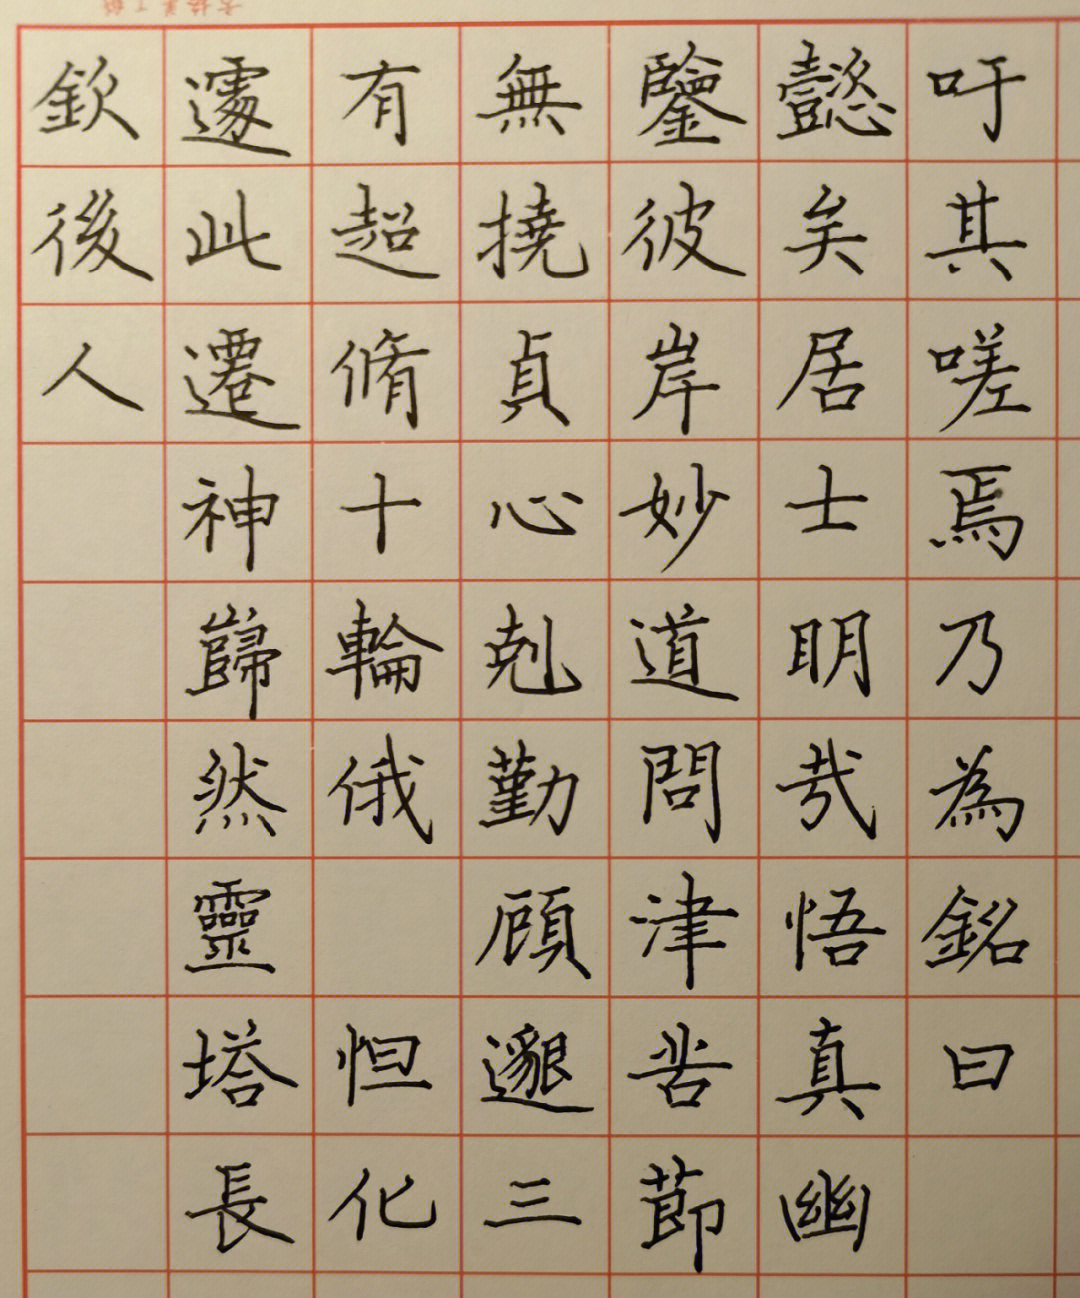 吁其嗟焉乃為銘曰
懿矣居士明哉悟真幽
鑒彼岸妙道問津苦莭
無撓貞心剋勤顧邈三
有超脩十輪俄 怛化
遽此遷神巋然靈塔長
欽後人